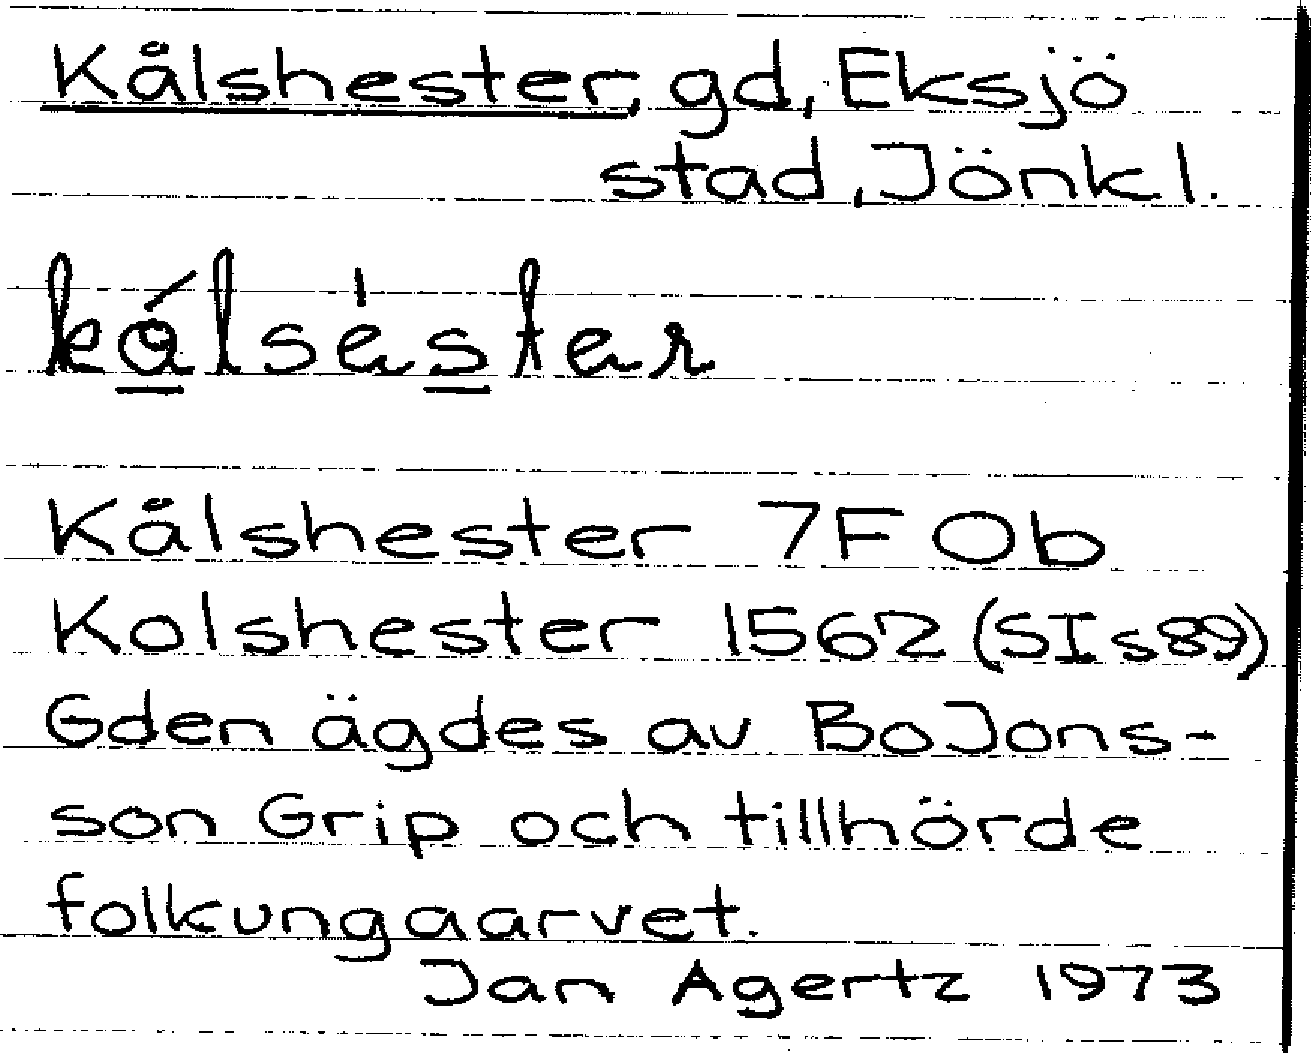 Kålshester, gd, Eksjö
stad, Jönkl.
kålsèster
Kålshester 7F Ob
Kolshester 1562 (SI s 89)
Gden ägdes av Bo Jons-
son Grip och tillhörde
folkungaarvet.
Jan Agertz 1973